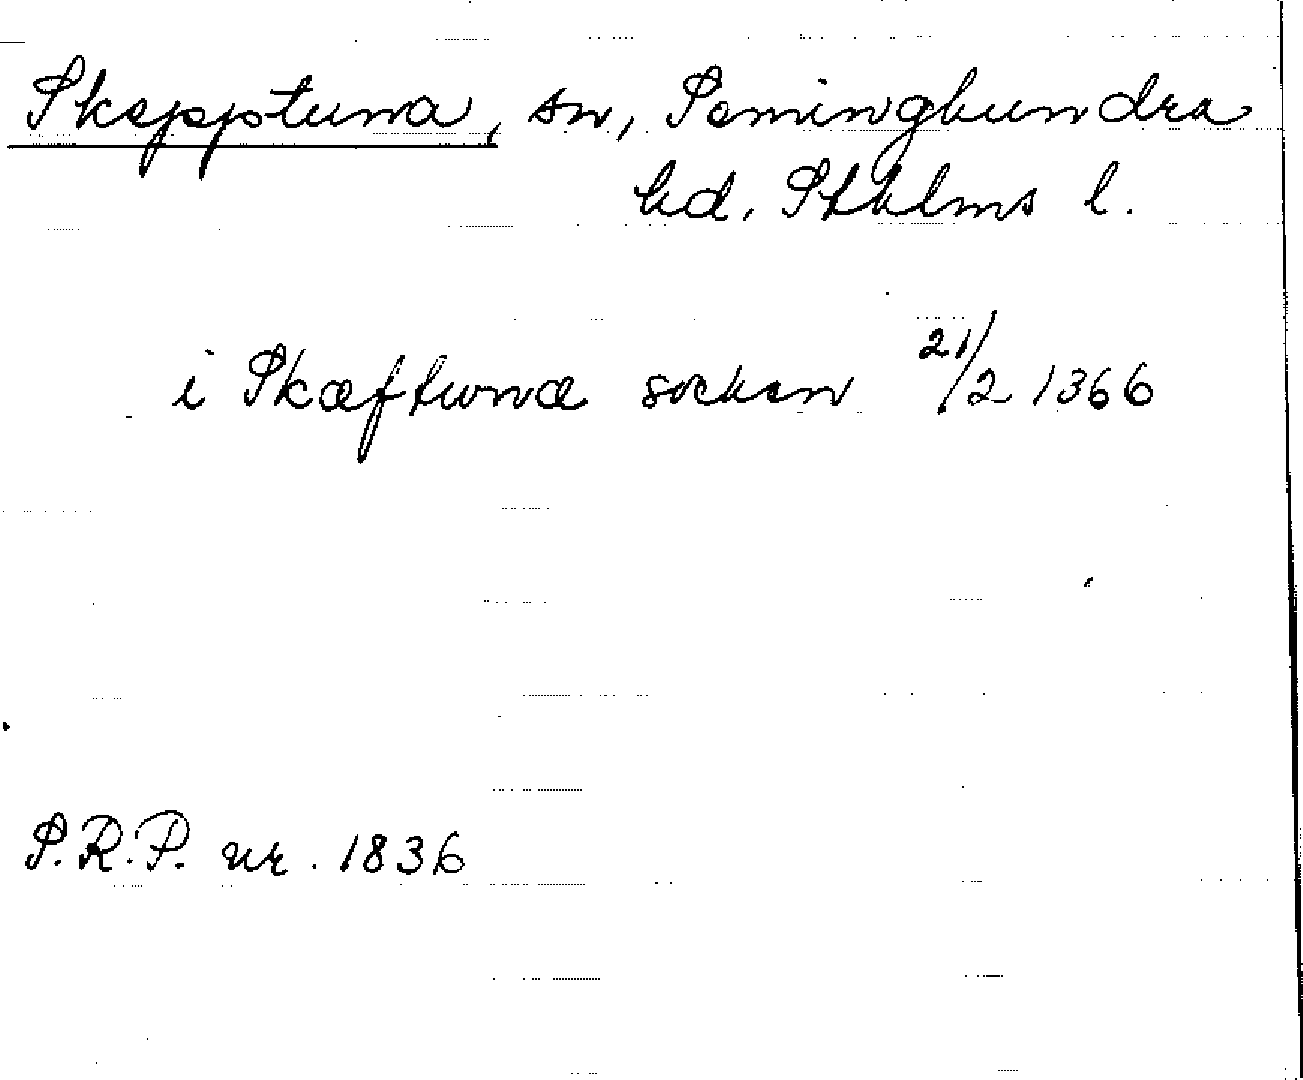 Skepptuna, sn, Seminghundra
hd, Sthlms l.
i Skæftuna socken 21/2 1366
S.R.P. nr. 1836